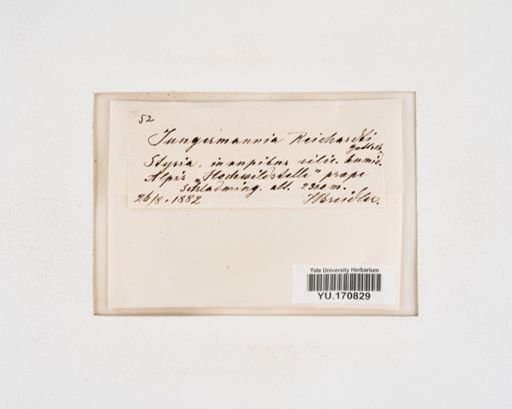 52
Jungermannia Reichardti
Gottsche
Styria. in rupibus silic. humid.
Alpis „Hochwildstelle" prope
Schladming. alt. 2300 m.
26/8. 1882 JBreidler.
Yale University Herbarium
YU.170829